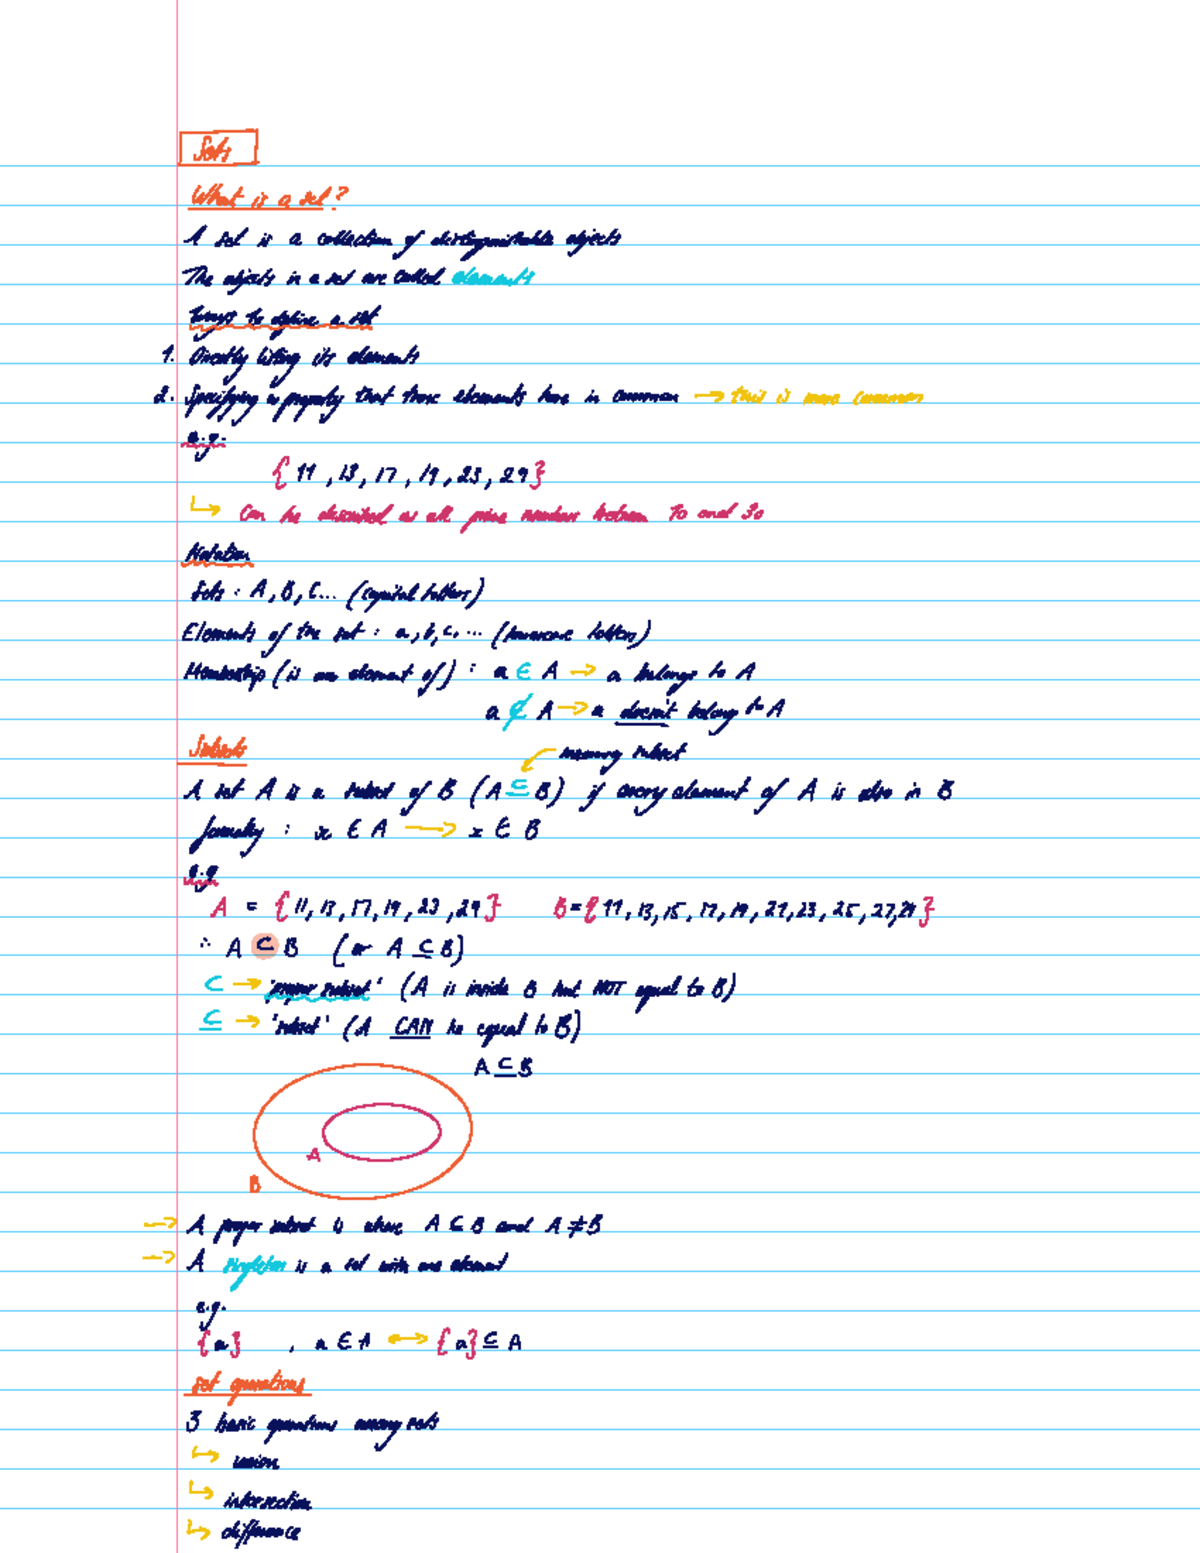 Sets
What is a set?
A set is a collection of distinguishable objects
The objects in a set are called elements
Ways to define a set
1. Directly listing its elements
2. Specifying a property that those elements have in common → this is more common
e.g.
{ 11, 13, 17, 19, 23, 29 }
↳ Can be described as all prime numbers between 10 and 30
Notation
Sets : A, B, C... (capital letters)
Elements of the set : a, b, c, ... (lowercase letters)
Membership (is an element of) : a ∈ A → a belongs to A
a ∉ A → a doesn't belong to A
Subsets
meaning subset
A set A is a subset of B (A ⊆ B) if every element of A is also in B
formally : x ∈ A → x ∈ B
e.g
A = { 11, 13, 17, 19, 23, 29 } B = { 11, 13, 15, 17, 19, 21, 23, 25, 27, 29 }
∴ A ⊂ B (or A ⊆ B)
⊂ → 'proper subset' (A is inside B but NOT equal to B)
⊆ → 'subset' (A CAN be equal to B)
A ⊆ B
A
B
→ A proper subset is where A ⊆ B and A ≠ B
→ A singleton is a set with one element
e.g.
{a} , a ∈ A ↔ {a} ⊆ A
Set operations
3 basic operations among sets
↳ union
↳ intersection
↳ difference